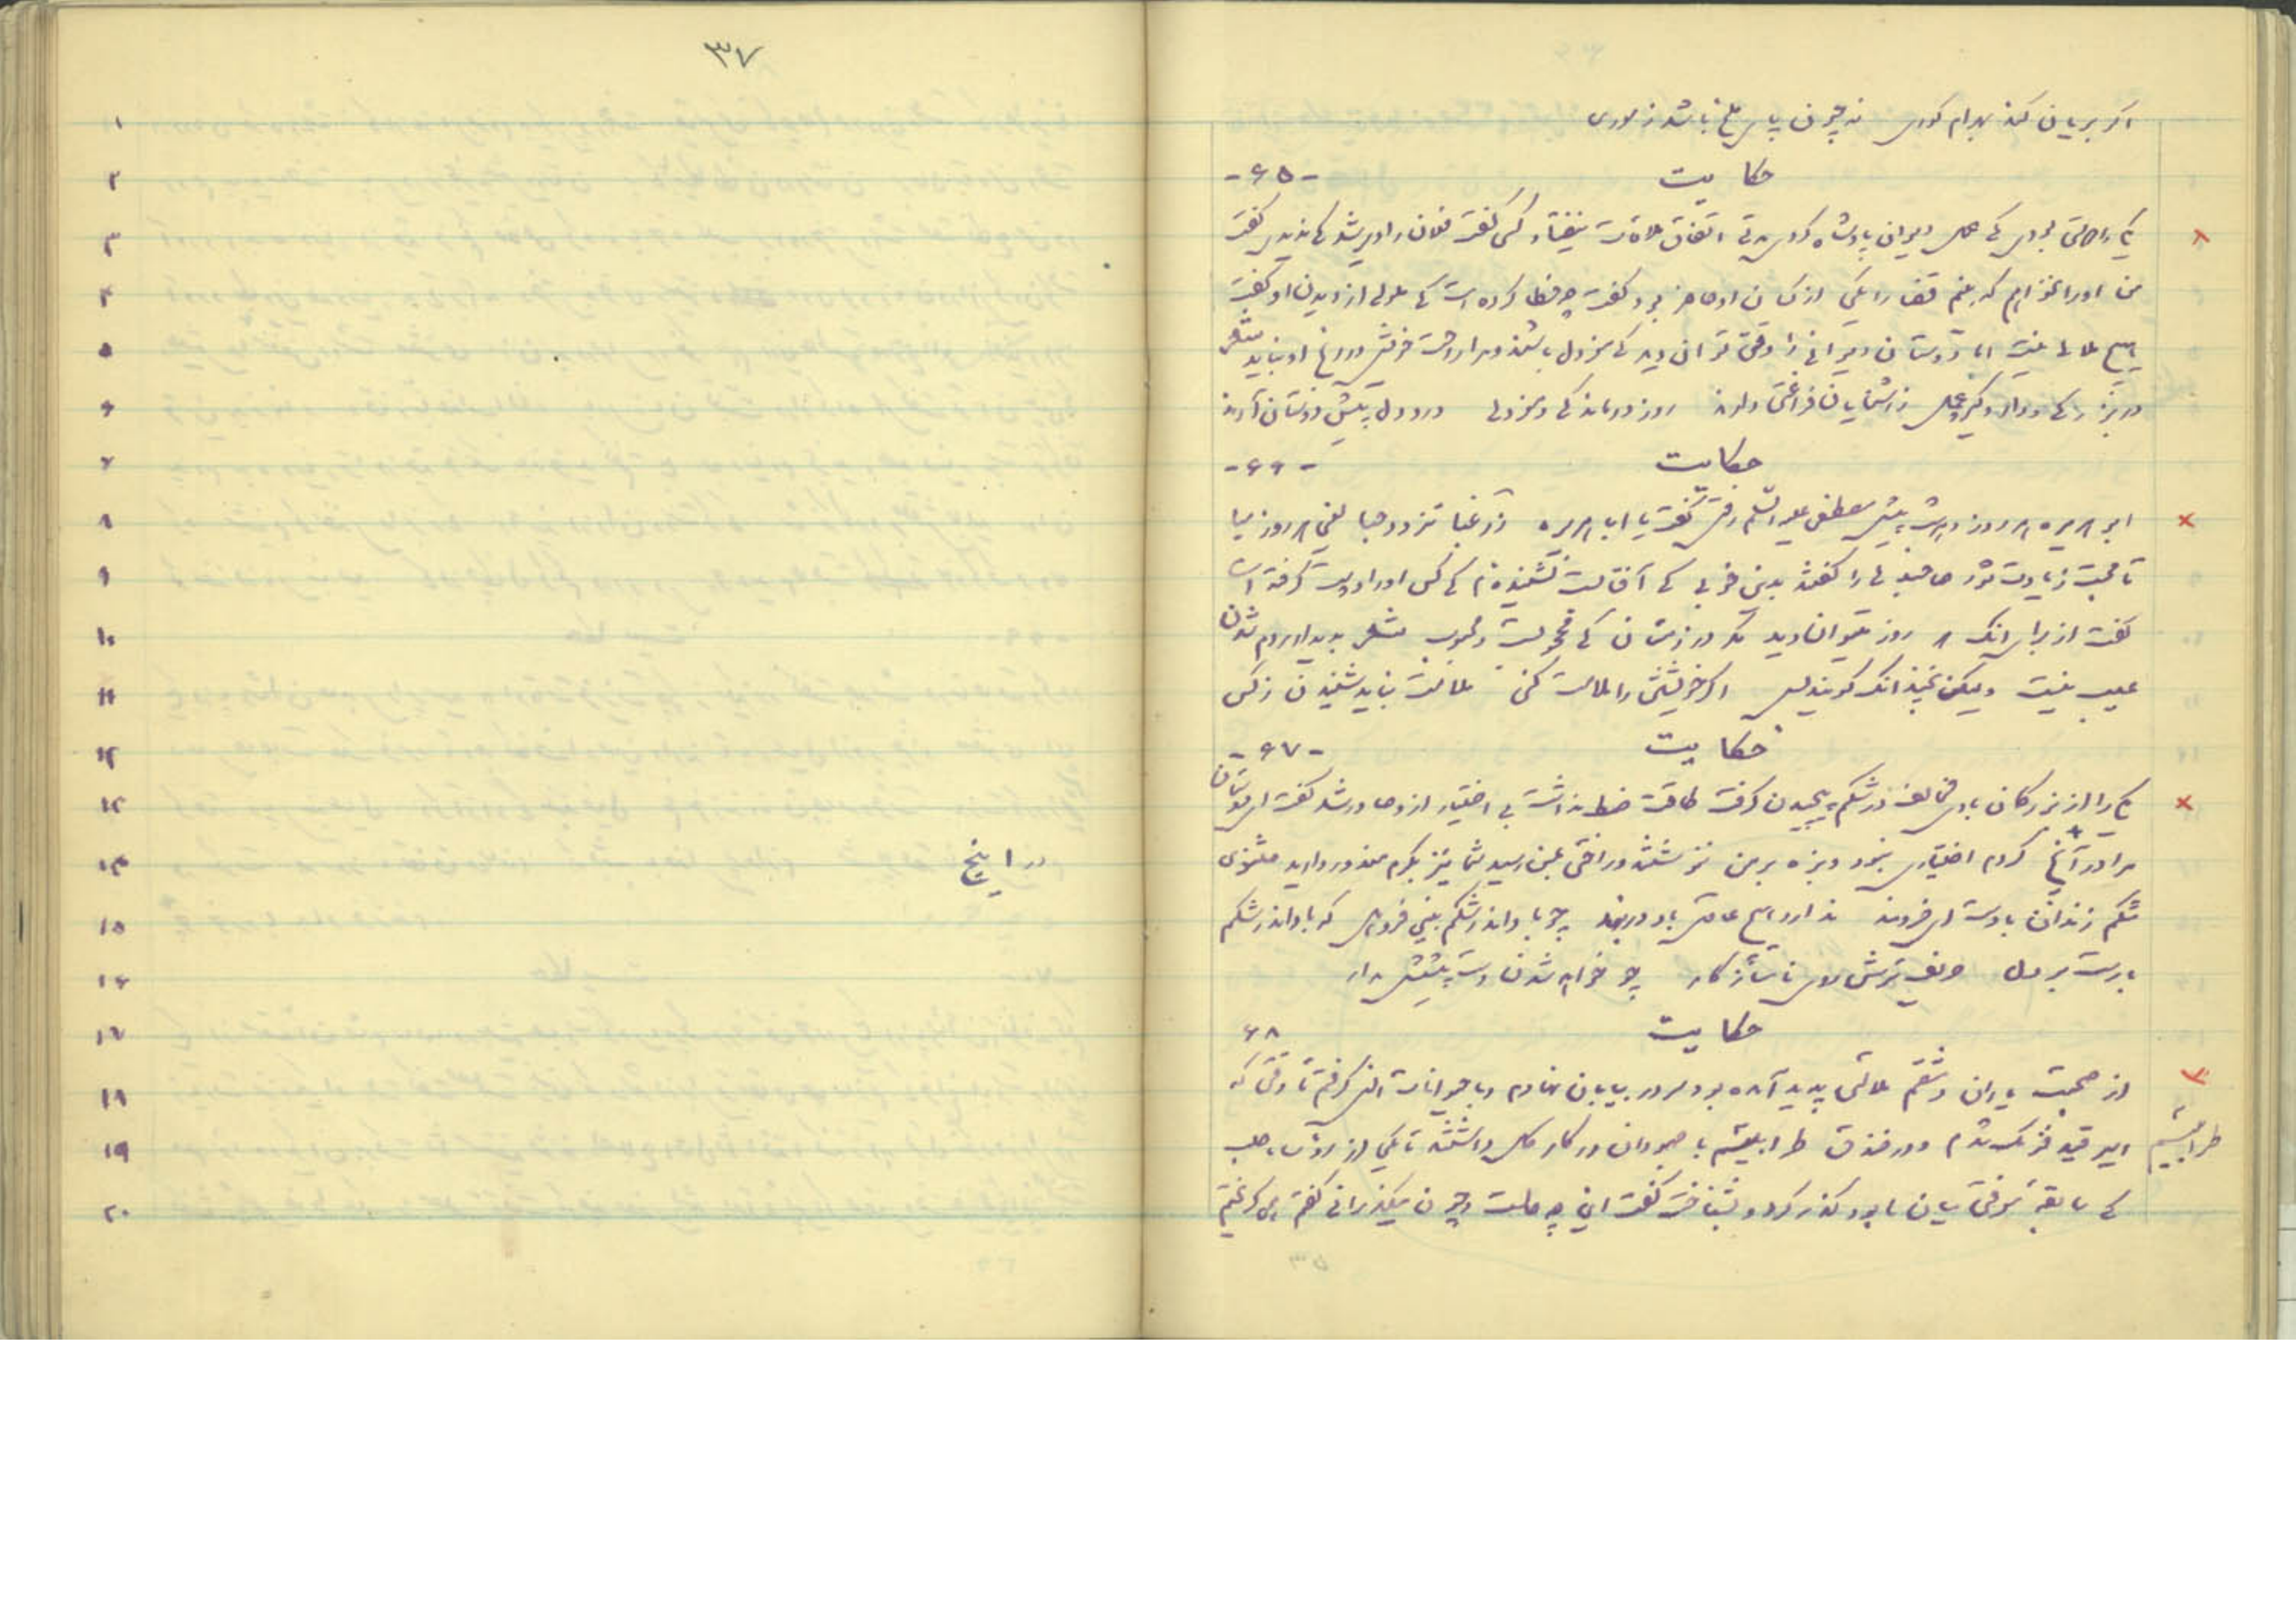 اگر بریان کند بهرام گوری نه چون پای ملخ باشد ز موری
حکایت -۶۵-
یکی را دوستی بودی که عمل دیوان پادشاه کردی مدتی اتفاق ملاقات نیفتاد کسی گفت فلان را دیر شد که ندیدی گفت
من او را نخواهم که بینم قضا را یکی از کسان او حاضر بود گفت چه خطا کرده است که ملولی از دیدن او گفت
هیچ ملالی نیست اما دوستان دیوانی را وقتی توان دید که معزول باشند و مرا راحت خویش در رنج او نباید شعر
در بزرگی و دار و گیر و عمل ز آشنایان فراغتی دارند روز درماندگی و معزولی درد دل پیش دوستان آرند
حکایت -۶۶-
ابو هریره هر روز بخدمت پیش مصطفی علیه السلم رفتی گفت یا ابا هریره زرغبا تزدد حبا یعنی هر روز میا
تا محبت زیادت شود صاحبدلی را گفتند بدین خوبی که آفتابست نشنیده‌ام که کس او را دوست گرفته است
گفت از برای آنک هر روز میتوان دید مگر در زمستان که محجوبست و محبوب شعر بدیدار مردم شدن
عیب نیست ولیکن نچندانک گویند بس اگر خویشتن را ملامت کنی ملامت نباید شنیدن ز کس
حکایت -۶۷-
یکی را از بزرگان بادی مخالف در شکم پیچیدن گرفت طاقت ضبط نداشت بی اختیار از و صادر شد گفت ای دوستان
مرا در آنچ کردم اختیاری نبود و بزه بر من ننوشتند و راحتی بمن رسید شما نیز بکرم معذور دارید مثنوی
شکم زندان بادست ای خردمند ندارد هیچ عاقل باد در بند چو باد اندر شکم پیچد فرو هل که باد اندر شکم
بارست بر دل حریف ترش روی ناسازگار چو خواهد شدن دست پیشش مدار
حکایت ۶۸
از صحبت یاران دمشقم ملالتی پدید آمده بود سر در بیابان نهادم و با حیوانات انس گرفتم تا وقتی که
اسیر قید فرنگ شدم و در خندق طرابلسم با جهودان در کار گل داشتند تا یکی از رؤساء حلب
طرابلسیم
که سابقهٔ معرفتی میان ما بود گذر کرد و بشناخت گفت این چه حالست و چون میگذرانی گفتم همی گریختم
۳۷
۱
۲
۳
۴
۵
۶
۷
۸
۹
۱۰
۱۱
۱۲
۱۳
۱۴ در اینچ
۱۵
۱۶
۱۷
۱۸
۱۹
۲۰